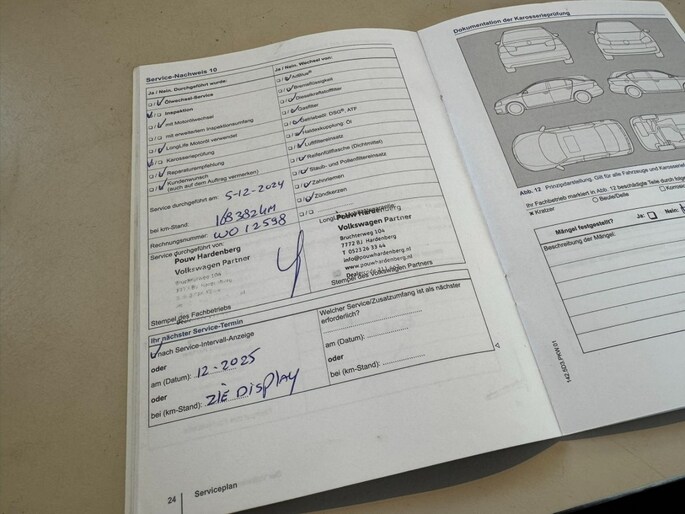 Service-Nachweis 10
Ja / Nein, Durchgeführt wurde:
Ölwechsel-Service
Inspektion
mit Motorölwechsel
mit erweitertem Inspektionsumfang
LongLife Motoröl verwendet
Karosserieprüfung
Reparaturempfehlung
Kundenwunsch
(auch auf dem Auftrag vermerken)
Service durchgeführt am: 5-12-2024
bei km-Stand: 168382 km
Rechnungsnummer: WO 12598
Service durchgeführt von:
Pouw Hardenberg
Volkswagen Partner
Stempel des Fachbetriebs
Ja / Nein, Wechsel von:
AdBlue®
Bremsflüssigkeit
Dieselkraftstofffilter
Gasfilter
Getriebeöl: DSG®, ATF
Haldexkupplung, Öl
Luftfiltereinsatz
Reifenfüllflasche (Dichtmittel)
Staub- und Pollenfiltereinsatz
Zahnriemen
Zündkerzen
Pouw Hardenberg
Volkswagen Partner
Bruchterweg 104
7772 BJ Hardenberg
T 0523 26 33 44
info@pouwhardenberg.nl
www.pouwhardenberg.nl
Stempel des Volkswagen Partners
Ihr nächster Service-Termin
nach Service-Intervall-Anzeige
oder
am (Datum): 12-2025
oder
bei (km-Stand): ZIE DISPLAY
Welcher Service/Zusatzumfang ist als nächster
erforderlich?
am (Datum):
oder
bei (km-Stand):
24 Serviceplan
Dokumentation der Karosserieprüfung
Abb. 12 Prinzipdarstellung. Gilt für alle Fahrzeuge und Karosserief
Ihr Fachbetrieb markiert in Abb. 12 beschädigte Teile durch folge
Kratzer Beule/Delle Korrosion
Mängel festgestellt? Ja: Nein:
Beschreibung der Mängel: